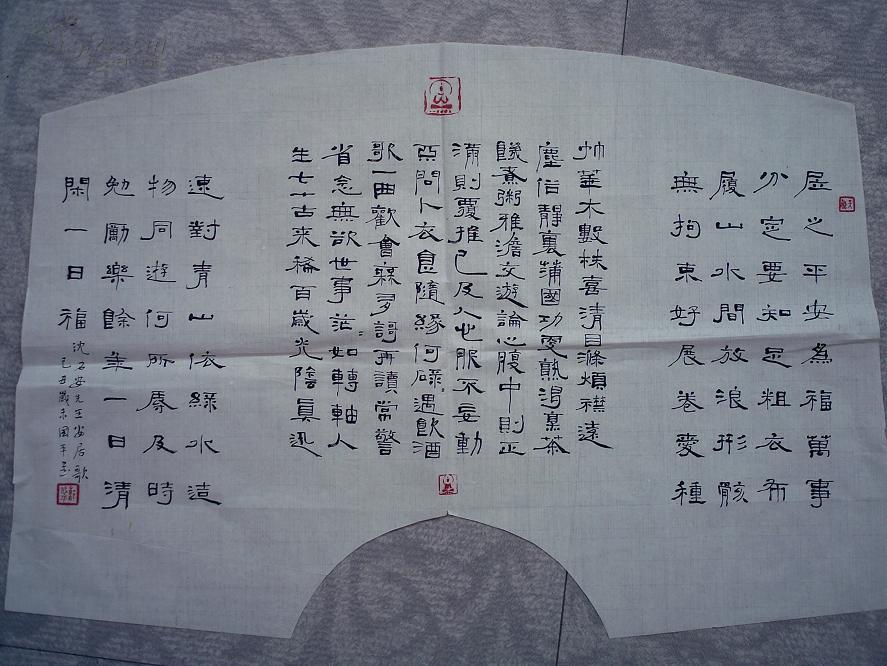 居之平安為福萬事
分定要知足粗衣布
履山水間放浪形骸
無拘束好展卷愛種
艸華木數株喜清目滌煩襟遠
塵俗靜裏蒲團功更熟渴烹茶
饑煮粥雅澹交遊論心腹中則正
滿則覆推己及人心服不妄動
亞問卜衣食隨緣何碌碌遇飲酒
歌一曲歡會寡多謌再讀常警
省念無欲世事茫茫如轉軸人
生七十古來稀百歲光陰真迅
速對青山依綠水造
物同遊何所辱及時
勉勵樂餘年一日清
閑一日福
沈石安先生安居歌
己丑歲末國平書